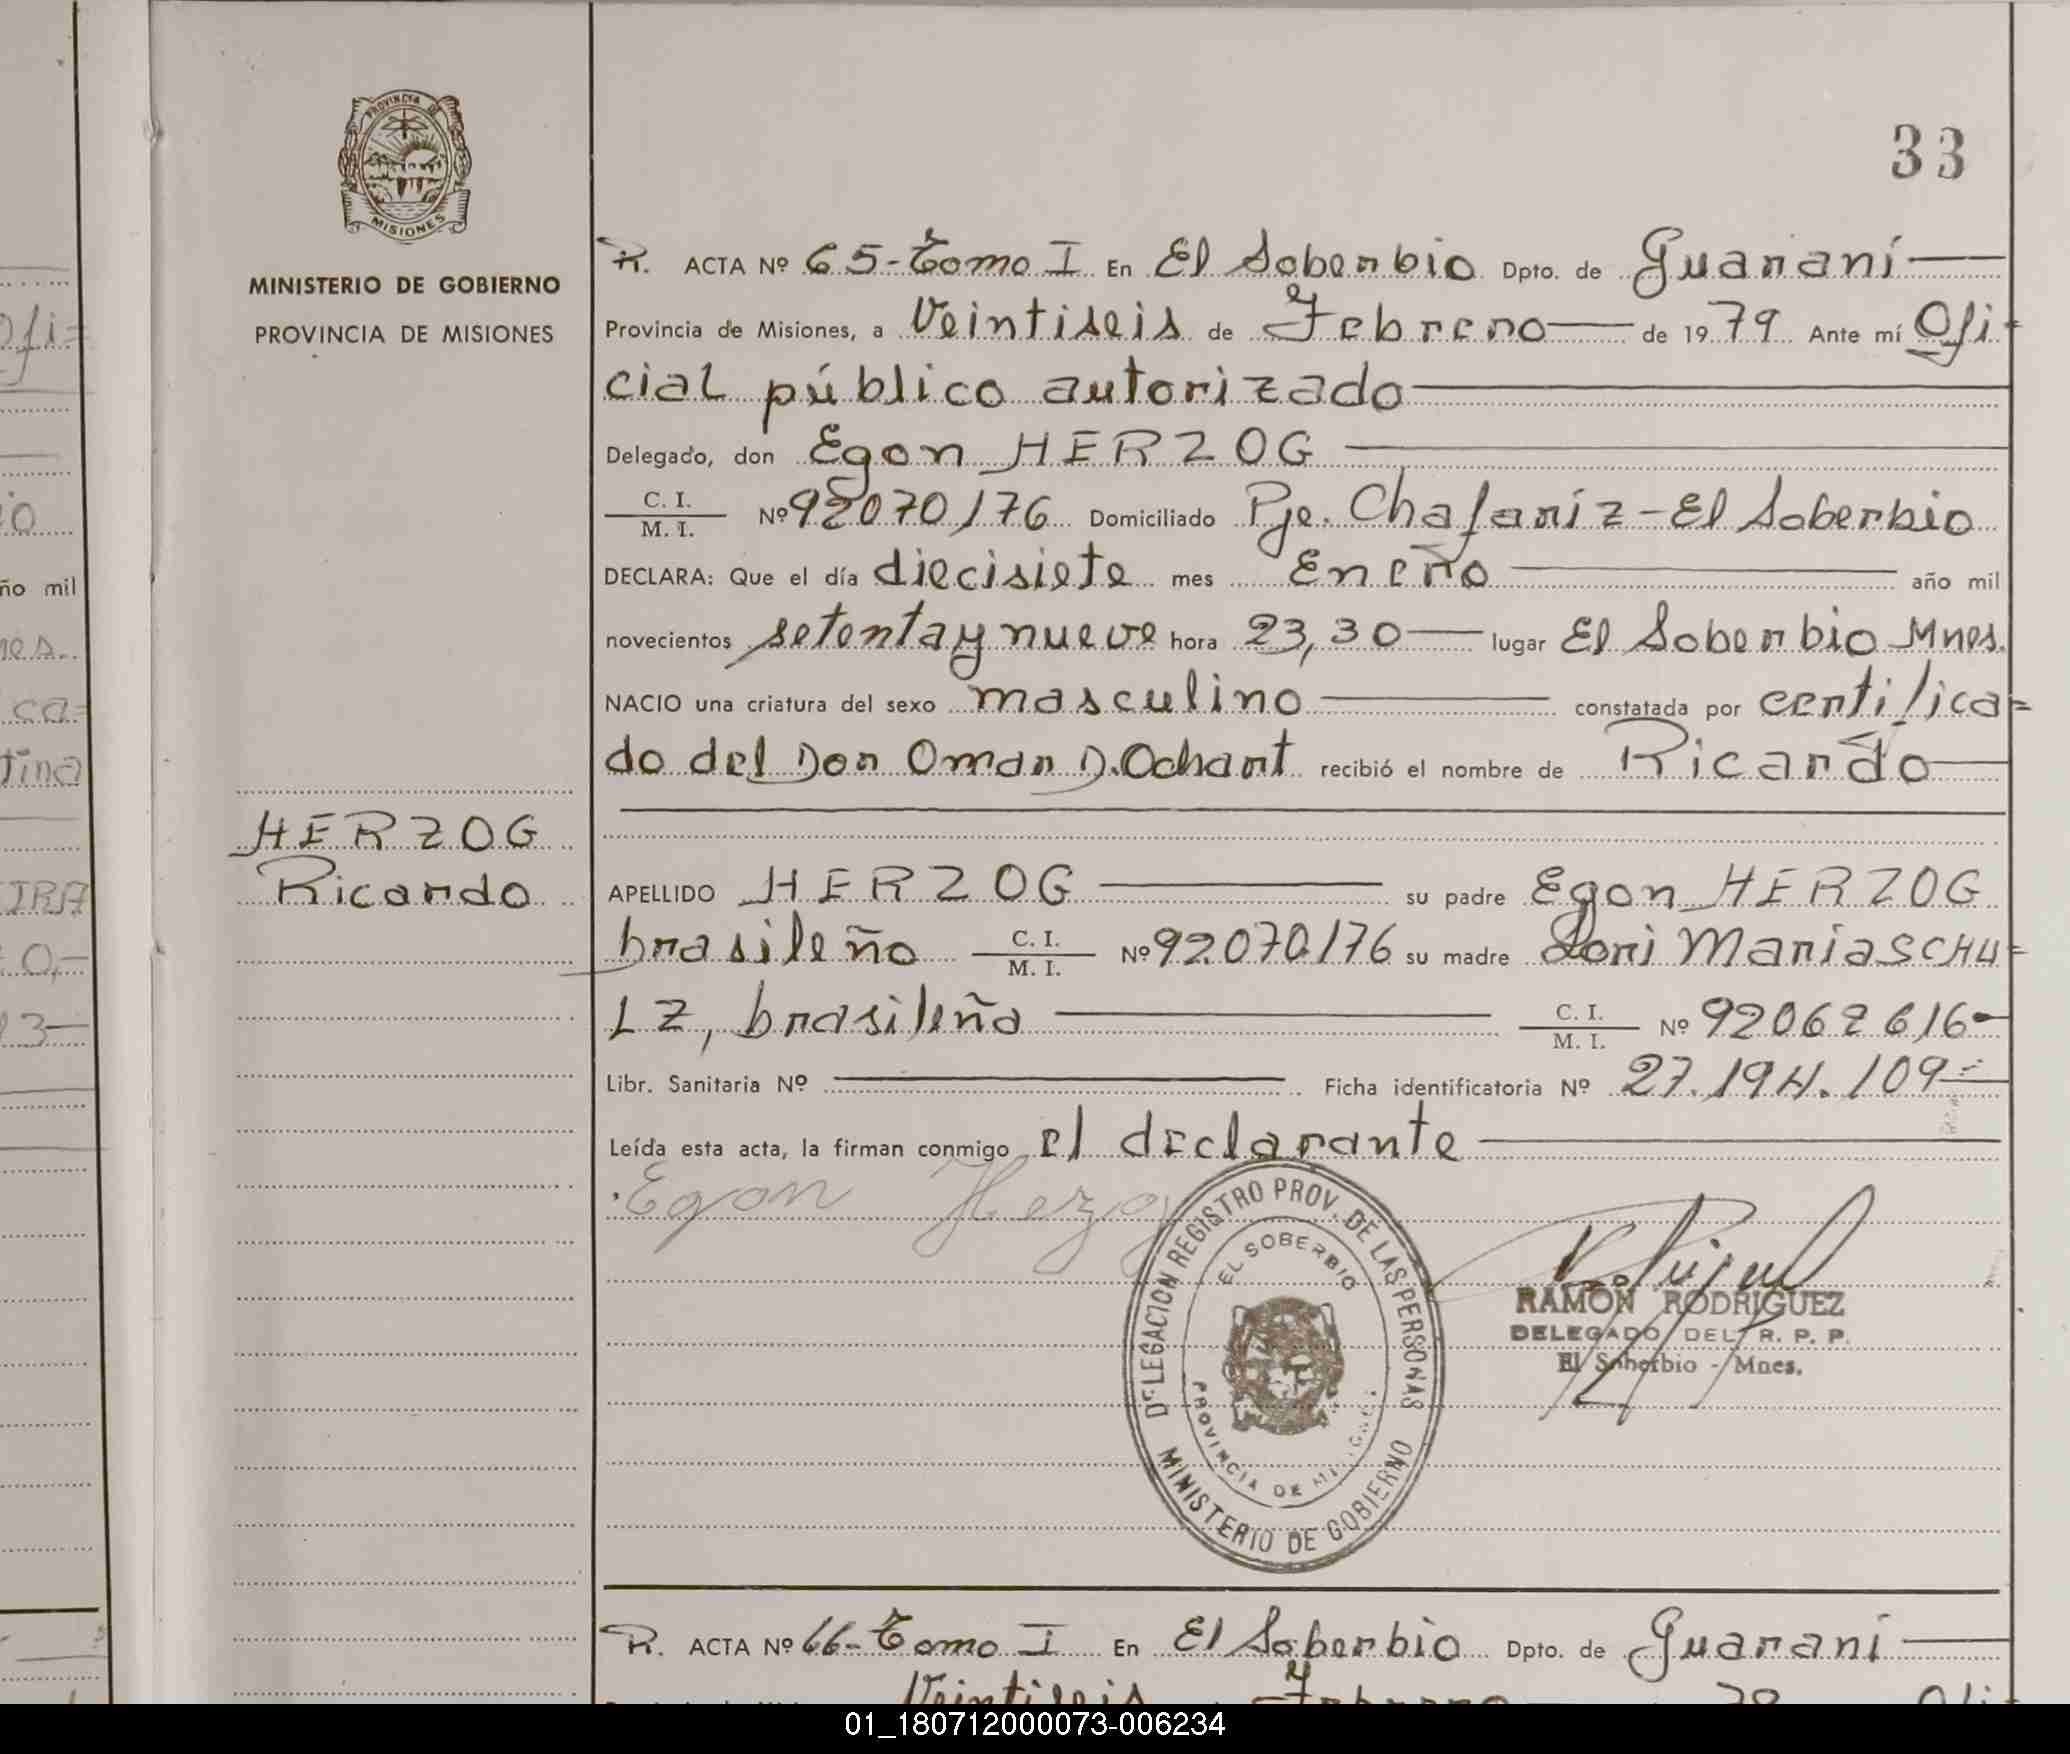 PROVINCIA DE
MISIONES
MINISTERIO DE GOBIERNO
PROVINCIA DE MISIONES
HERZOG
Ricardo
33
R. ACTA Nº 65-Tomo I En El Soberbio Dpto. de Guaraní
Provincia de Misiones, a Veintiseis de Febrero de 1979 Ante mí Ofi-
cial público autorizado
Delegado, don Egon HERZOG
C. I. / M. I. Nº 92070176 Domiciliado Pje. Chafariz-El Soberbio
DECLARA: Que el día diecisiete mes Enero año mil
novecientos setenta y nueve hora 23,30 lugar El Soberbio Mnes.
NACIO una criatura del sexo masculino constatada por certifica=
do del Don Omar D. Ochart recibió el nombre de Ricardo
APELLIDO HERZOG su padre Egon HERZOG
brasileño C. I. / M. I. Nº 92.070.176 su madre Loni Maria SCHU=
LZ, brasileña C. I. / M. I. Nº 92062616-
Libr. Sanitaria Nº Ficha identificatoria Nº 27.194.109=
Leída esta acta, la firman conmigo el declarante
Egon Herzog
DELEGACION REGISTRO PROV. DE LAS PERSONAS
EL SOBERBIO
PROVINCIA DE MISIONES
MINISTERIO DE GOBIERNO
RAMON RODRIGUEZ
DELEGADO DEL R. P. P.
El Soberbio - Mnes.
R. ACTA Nº 66-Tomo I En El Soberbio Dpto. de Guaraní
Veintiseis Febrero 79 Ofi
01_180712000073-006234